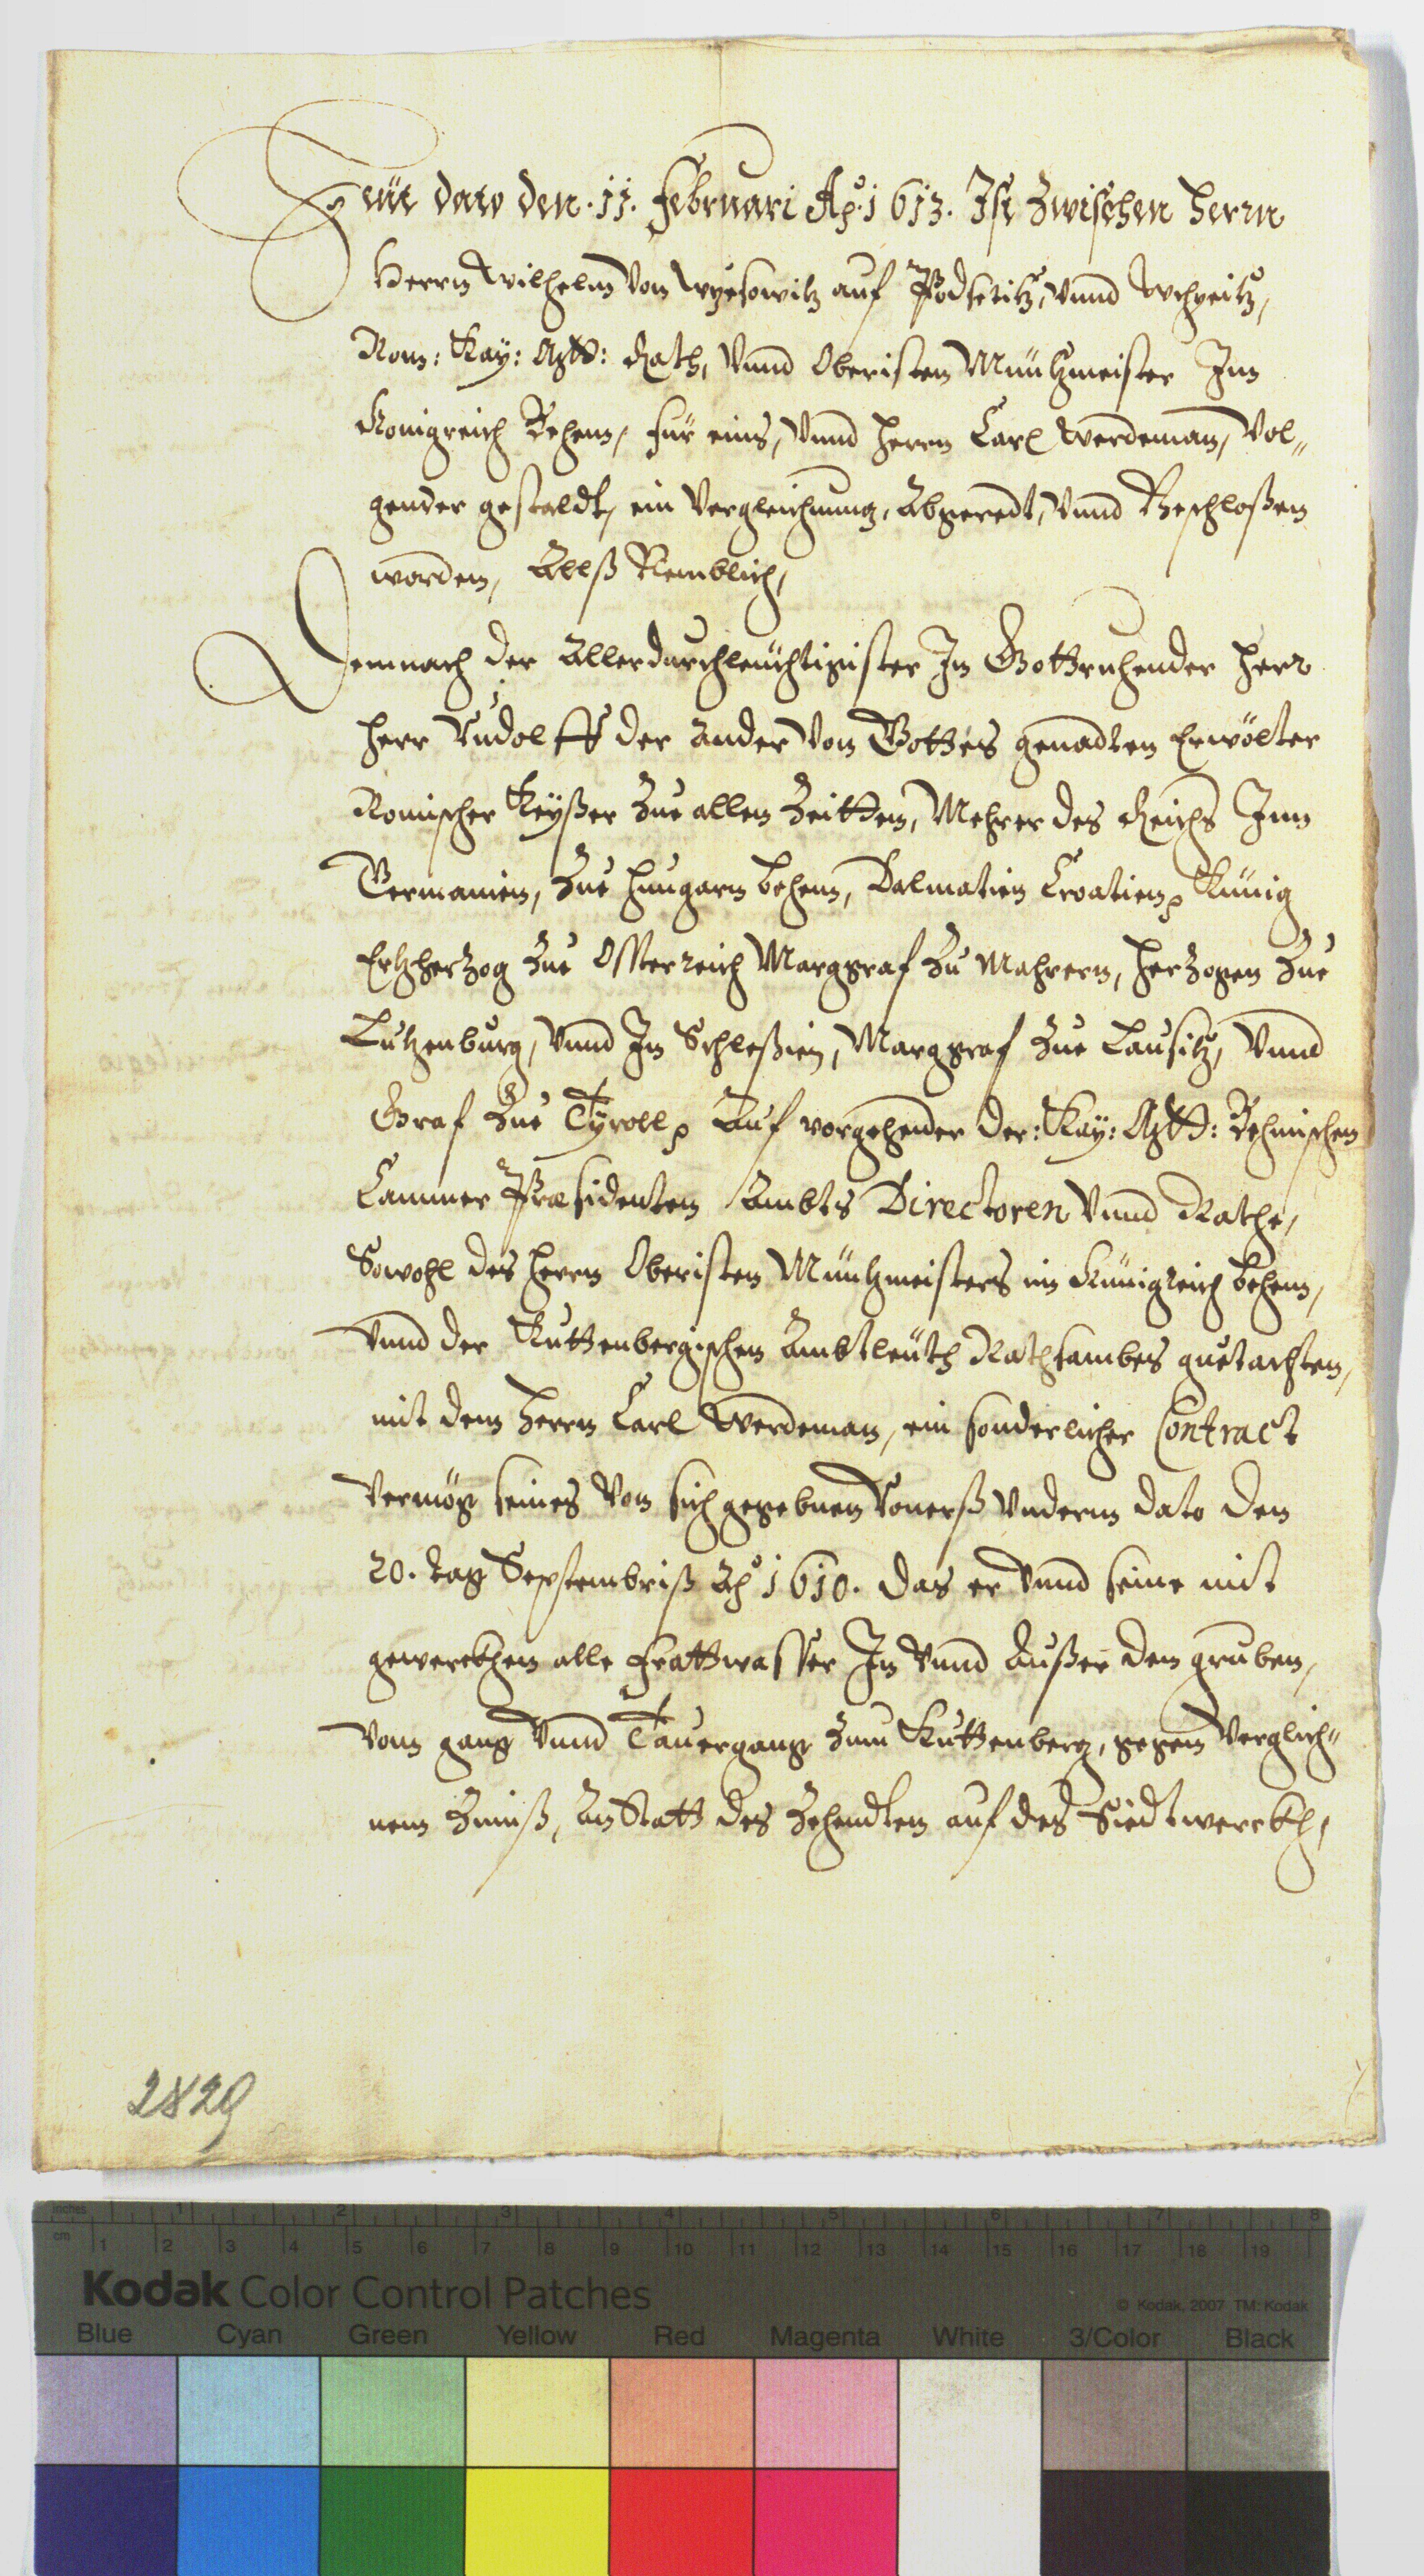 Heüt dato den . 11. Februari Aº. 1613. Ist Zwischen Herrn
Herrn Wilhelm von Wrzesowitz auf Podseditz, vnnd
Rom: Kay: Mtt: Rath, Vnnd Obristen Müntzmeister Inn
Konigreich Behem, für eins, Vnnd Herrn Carl Werdeman, Vol„
gender gestaldt, ein Vergleichnung, Abgeredt, Vnnd Beschloßen
worden, Allß Nemblich,
Demnach der Allerdurchleüchtigister In Gott Ruhender Herr
Herr Rudolff der Ander Von Gottes genadten Erwölter
Romischer Keyßer Zue allen Zeitten, Mehrer des Reichs Inn
Germanien, Zue Hungarn Behem, Dalmatien Croatien, Künig
Ertzherzog Zue Ossterreich Marggraf Zu Mahrern, Herzogen Zue
Lutzenburg, Vnnd In Schleßien, Marggraf Zue Lausitz, Vnnd
Graf Zue Tyroll, Auf vorgehender der: Kay: Mtt: Behmischen
Cammer Præsidenten Ambts Directoren Vnnd Rathe,
Sowohl des Herrn Obristen Müntzmeisters im Künigreich Behem,
Vnnd der Kuttenbergischen Ambtleüth Rathsambes guetachten,
mit dem Herrn Carl Werdeman, ein sonderlicher Contract
Vermög seines Von sich gegebnen Reuerß Vnderm dato den
20. tag Septembriß Aº 1610. das er Vnnd seine mit
gewerckhen alle Wasser In Vnnd Außer den gruben,
Vom gang Vnnd Tauergang Zum Kuttenberg, gegen Verglich„
nem Zinnß, An Statt des Zehendten auf des Siedtwerckh,
2829
Kodak Color Control Patches
© Kodak, 2007 TM: Kodak
inches 1 2 3 4 5 6 7 8
cm 1 2 3 4 5 6 7 8 9 10 11 12 13 14 15 16 17 18 19
Blue Cyan Green Yellow Red Magenta White 3/Color Black